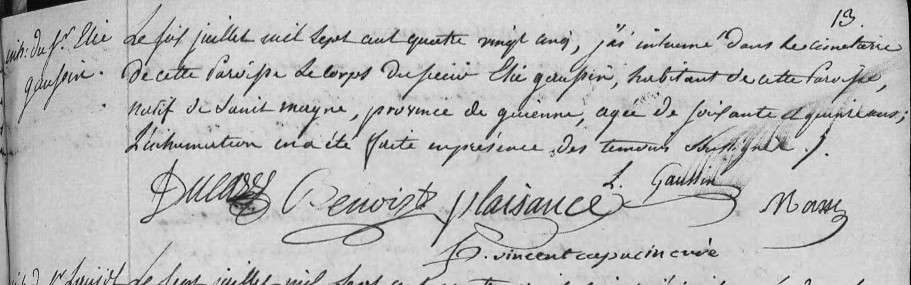 13.
inh: du Sr. Elie
gaussin.
Le six juillet mil sept cent quatre vingt cinq, j'ai inhumé dans le cimetiere
de cette Paroisse Le corps du sieur Elie gaussin, habitant de cette Paroisse,
natif de Saint mayne, province de guienne, agée de soixante et quinze ans;
L'inhumation en a été faite en présence des temoins soussignés ./
Benoist plaisance L. Gaussin Masse
P. vincent capucin curé
Le sept juillet mil sept cent